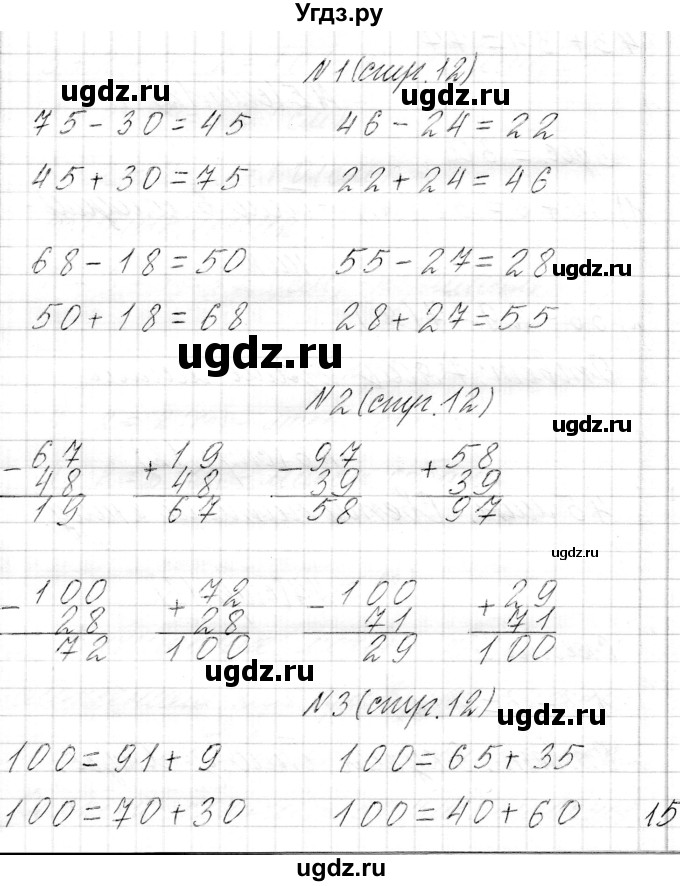 Угдз.ру
№1 (стр. 12)
ugdz.ru ugdz.ru
75 - 30 = 45 46 - 24 = 22
45 + 30 = 75 22 + 24 = 46
68 - 18 = 50 55 - 27 = 28
ugdz.ru
50 + 18 = 68 28 + 27 = 55
ugdz.ru
№2 (стр. 12)
ugdz.ru
- 67 + 19 - 97 + 58
48 48 39 39
19 67 58 97
ugdz.ru
- 100 + 72 - 100 + 29
28 28 71 71
72 100 29 100
ugdz.ru
№3 (стр. 12)
ugdz.ru
100 = 91 + 9 100 = 65 + 35
100 = 70 + 30 100 = 40 + 60 15
ugdz.ru
ugdz.ru